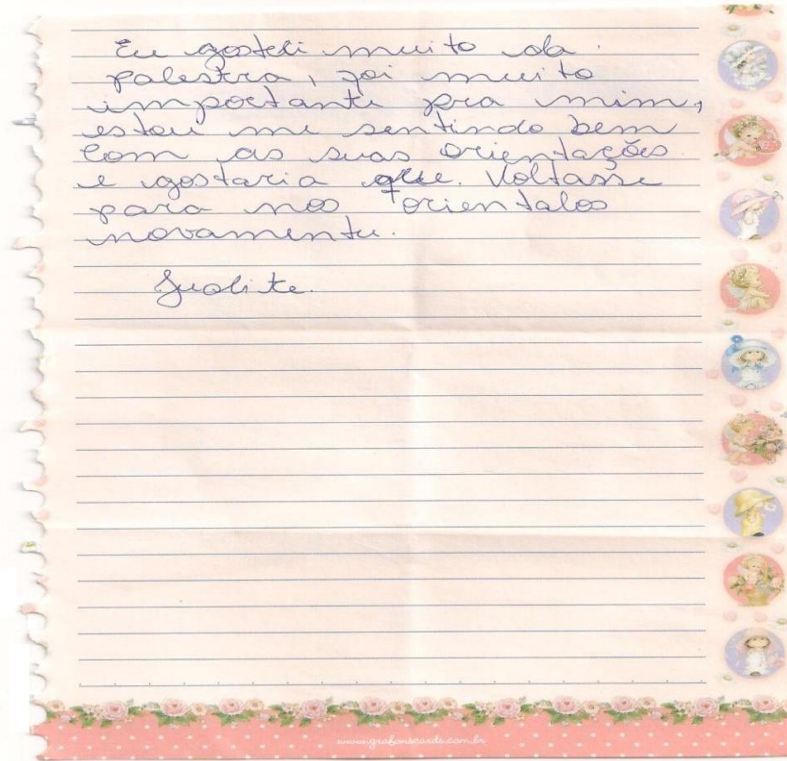 Eu gosteei muito da.
palestra, foi muito
importante pra mim,
estou me sentindo bem
com as suas orientações
e gostaria que. Voltasse
para nos orientalos
novamente.
Judite.
www.grafonscards.com.br